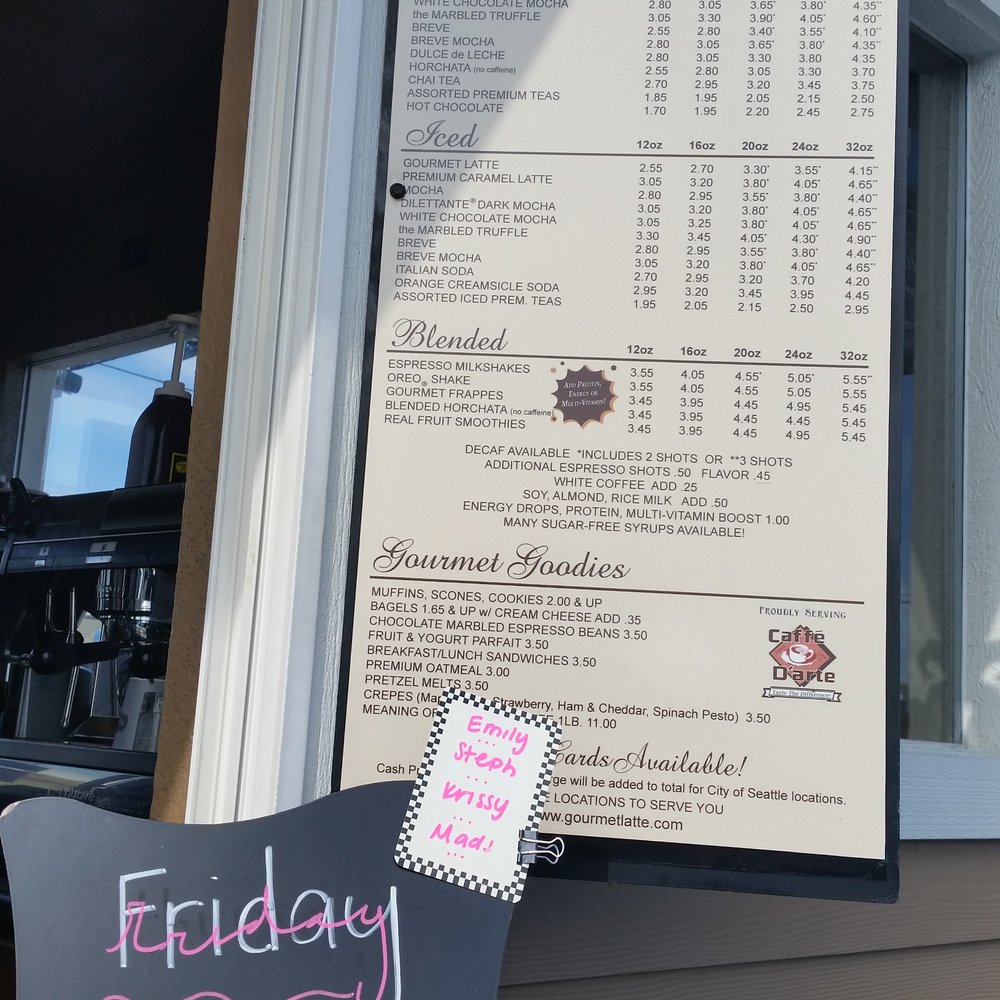 WHITE CHOCOLATE MOCHA 2.80 3.05 3.65* 3.80* 4.35**
the MARBLED TRUFFLE 3.05 3.30 3.90* 4.05* 4.60**
BREVE 2.55 2.80 3.40* 3.55* 4.10**
BREVE MOCHA 2.80 3.05 3.65* 3.80* 4.35**
DULCE de LECHE 2.80 3.05 3.30 3.80 4.35
HORCHATA (no caffeine) 2.55 2.80 3.05 3.30 3.70
CHAI TEA 2.70 2.95 3.20 3.45 3.75
ASSORTED PREMIUM TEAS 1.85 1.95 2.05 2.15 2.50
HOT CHOCOLATE 1.70 1.95 2.20 2.45 2.75
Iced 12oz 16oz 20oz 24oz 32oz
GOURMET LATTE 2.55 2.70 3.30* 3.55* 4.15**
PREMIUM CARAMEL LATTE 3.05 3.20 3.80* 4.05* 4.65**
MOCHA 2.80 2.95 3.55* 3.80* 4.40**
DILETTANTE® DARK MOCHA 3.05 3.20 3.80* 4.05* 4.65**
WHITE CHOCOLATE MOCHA 3.05 3.25 3.80* 4.05* 4.65**
the MARBLED TRUFFLE 3.30 3.45 4.05* 4.30* 4.90**
BREVE 2.80 2.95 3.55* 3.80* 4.40**
BREVE MOCHA 3.05 3.20 3.80* 4.05* 4.65**
ITALIAN SODA 2.70 2.95 3.20 3.70 4.20
ORANGE CREAMSICLE SODA 2.95 3.20 3.45 3.95 4.45
ASSORTED ICED PREM. TEAS 1.95 2.05 2.15 2.50 2.95
Blended 12oz 16oz 20oz 24oz 32oz
ESPRESSO MILKSHAKES 3.55 4.05 4.55* 5.05* 5.55**
OREO® SHAKE 3.55 4.05 4.55 5.05 5.55
GOURMET FRAPPES 3.45 3.95 4.45 4.95 5.45
BLENDED HORCHATA (no caffeine) 3.45 3.95 4.45 4.95 5.45
REAL FRUIT SMOOTHIES 3.45 3.95 4.45 4.95 5.45
ADD PROTEIN,
ENERGY OR
MULTI-VITAMIN!
DECAF AVAILABLE *INCLUDES 2 SHOTS OR **3 SHOTS
ADDITIONAL ESPRESSO SHOTS .50 FLAVOR .45
WHITE COFFEE ADD .25
SOY, ALMOND, RICE MILK ADD .50
ENERGY DROPS, PROTEIN, MULTI-VITAMIN BOOST 1.00
MANY SUGAR-FREE SYRUPS AVAILABLE!
Gourmet Goodies
MUFFINS, SCONES, COOKIES 2.00 & UP
BAGELS 1.65 & UP w/ CREAM CHEESE ADD .35
CHOCOLATE MARBLED ESPRESSO BEANS 3.50
FRUIT & YOGURT PARFAIT 3.50
BREAKFAST/LUNCH SANDWICHES 3.50
PREMIUM OATMEAL 3.00
PRETZEL MELTS 3.50
CREPES (Mar Strawberry, Ham & Cheddar, Spinach Pesto) 3.50
MEANING OF 1LB. 11.00
PROUDLY SERVING
Caffé
D'arte
Taste The Difference!
Cards Available!
Cash Pr rge will be added to total for City of Seattle locations.
E LOCATIONS TO SERVE YOU
www.gourmetlatte.com
Emily
Steph
Krissy
Madi
Friday
Friday